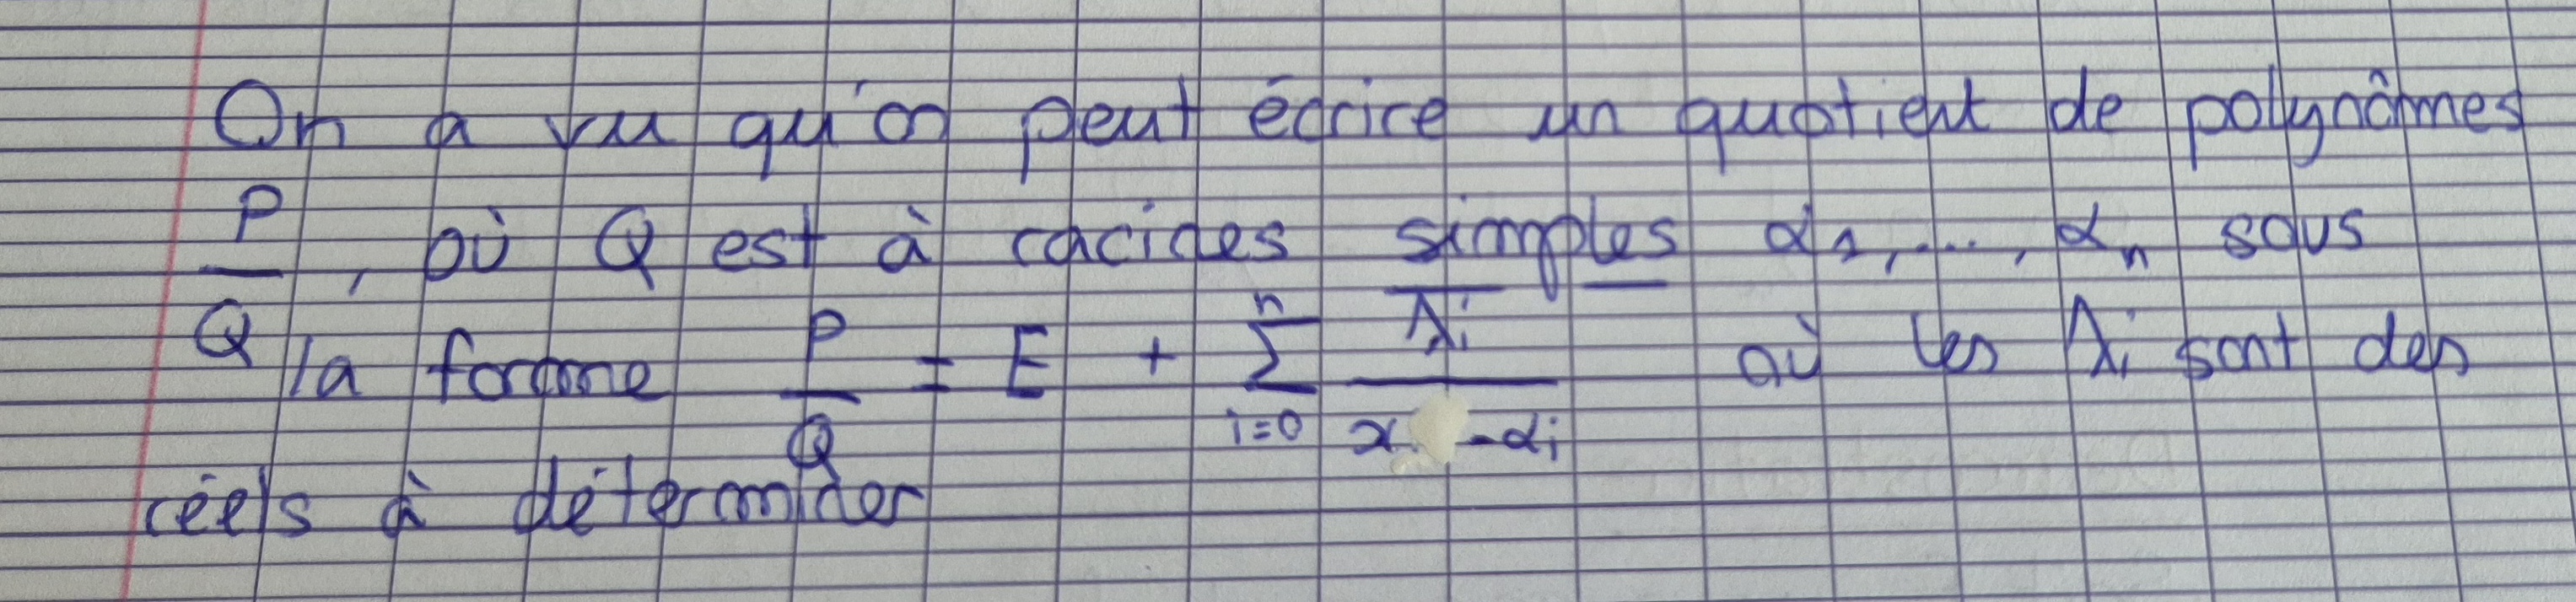 On a vu qu'on peut écrire un quotient de polynômes
P/Q, où Q est à racines simples α₁, ..., αₙ sous
la forme P/Q = E + ∑_{i=0}^{n} λi/(x - αi) où les λi sont des
réels à déterminer